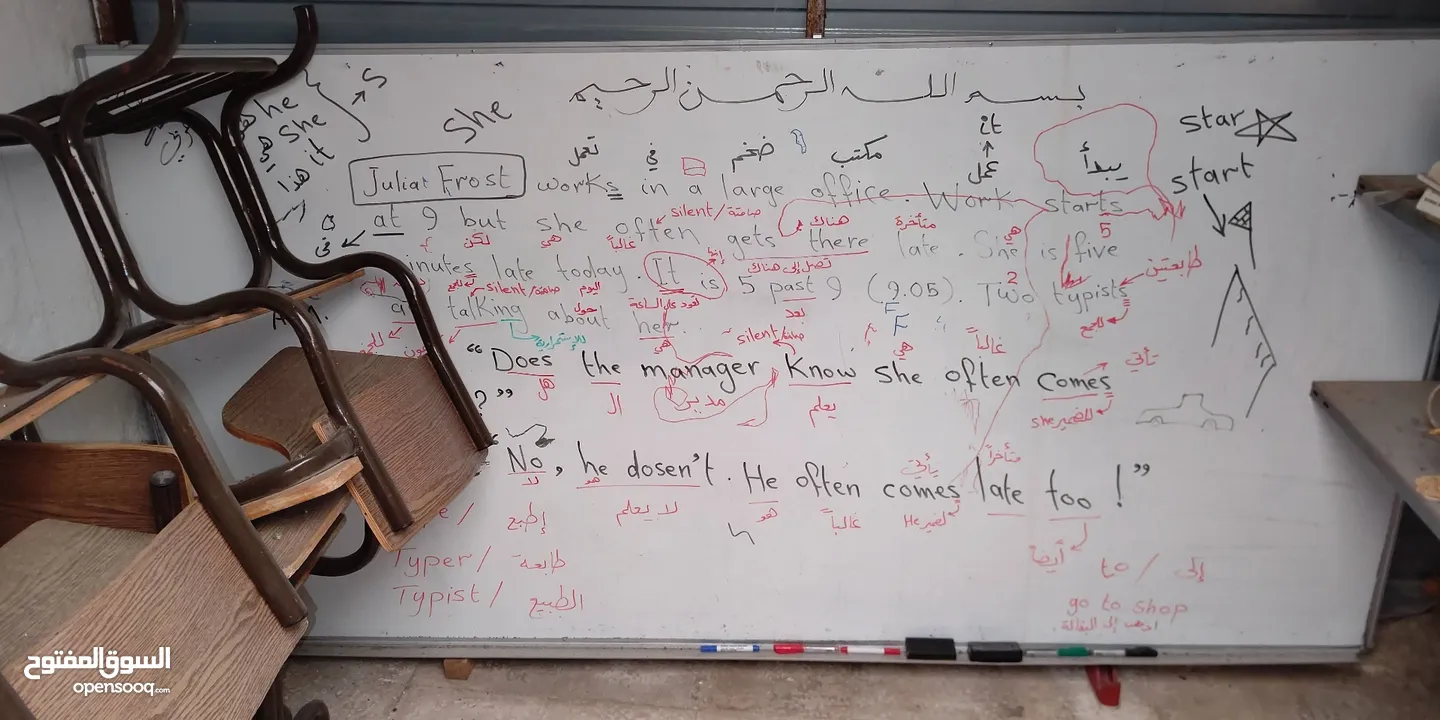 بسم الله الرحمن الرحيم
he
she
it
هي
هذا
s
she
star
start
it
تعمل في ضخم مكتب عمل يبدأ
Juliat Frost works in a large office. Work starts
silent/صامتة هناك متأخرة هي 5
at 9 but she often gets there late. She is five
في لكن هي غالباً تصل إلى هناك إنها طابعتين
inutes late today. It is 5 past 9 (9.05). Two typists
silent/صامتة اليوم حول تعود على الساعة بعد 2 للجمع
a talking about her.
للإستمرارية هي silent/صامتة F هي غالباً تأتي
"Does the manager know she often comes
هل ال مدير يعلم للضمير she
?"
No, he dosen't. He often comes late too!"
لا هو لا يعلم هو غالباً يأتي لضمير He متأخراً أيضاً
e/ إطبع
Typer/ طابعة
Typist/ الطبيع
to/ إلى
go to shop
اذهب إلى البقالة.
السوق المفتوح
opensooq.com